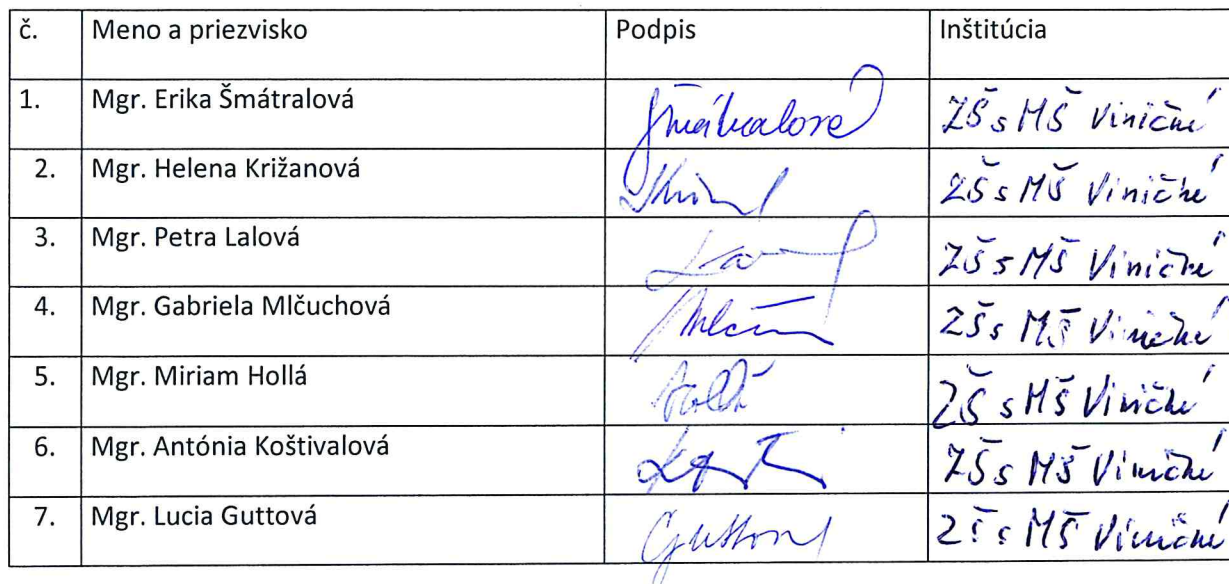 č. Meno a priezvisko Podpis Inštitúcia
1. Mgr. Erika Šmátralová Šmátralová ZŠ s MŠ Viničné
2. Mgr. Helena Križanová ZŠ s MŠ Viničné
3. Mgr. Petra Lalová ZŠ s MŠ Viničné
4. Mgr. Gabriela Mlčuchová ZŠ s MŠ Viničné
5. Mgr. Miriam Hollá Hollá ZŠ s MŠ Viničné
6. Mgr. Antónia Koštivalová ZŠ s MŠ Viničné
7. Mgr. Lucia Guttová ZŠ s MŠ Viničné